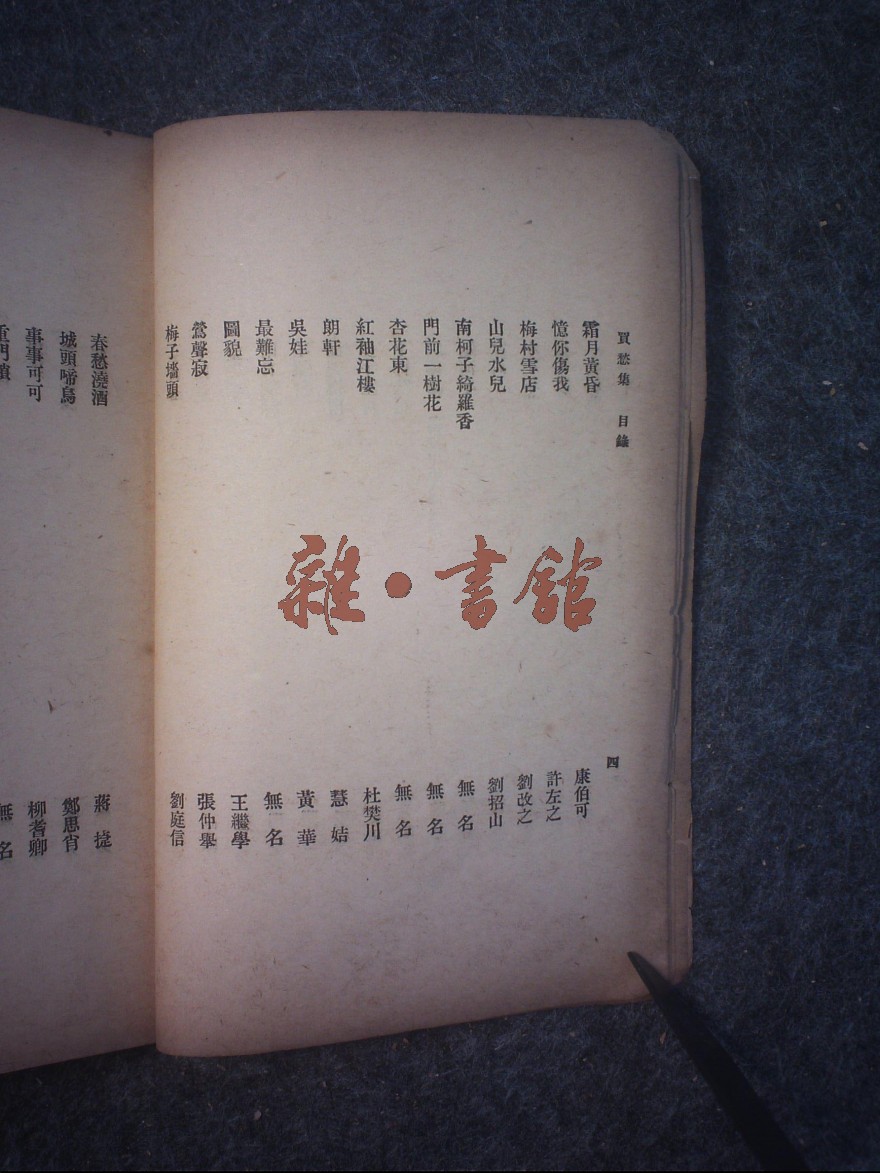 買愁集 目錄 四
霜月黃昏 康伯可
憶你傷我 許左之
梅村雪店 劉改之
山兒水兒 劉招山
南柯子綺羅香 無名
門前一樹花 無名
杏花東 無名
紅袖江樓 杜樊川
朗軒 慧姞
吳娃 黃華
最難忘 無名
圖貌 王繼學
鶯聲寂 張仲舉
梅子墻頭 劉庭信
春愁澆酒 蔣捷
城頭啼鳥 鄭思肖
事事可可 柳耆卿
重門 無名
雜·書館